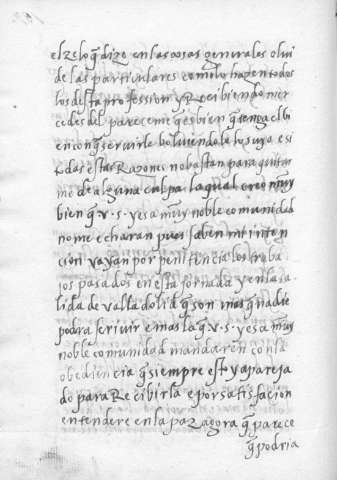 el zelo q̃ dize en las cosas generales olui
de las particulares como lo hazen todos
los desta profession y Recibiendo mer
cedes del pareceme q̃ es bien q̃ tenga el bi
en con q̃ seruirle boluiendole lo suyo e si
todas estas Razones no bastan para quitar
me de alguna culpa. la qual creo muy
bien q̃ v. s. y esa muy noble comunidad
no me echaran pues saben mi inten
cion vayan por penitencia los traba
jos pasados en esta jornada y en la sa
lida de valladolid q̃ son mas q̃ nadie
podra scriuir e mas la q̃ v. s. y esa muy
noble comunidad mandaren con la
obediencia q̃ siempre estoy apareja
do para Recibirla e por satisfacion
entendere en la paz agora q̃ parece
q̃ podria